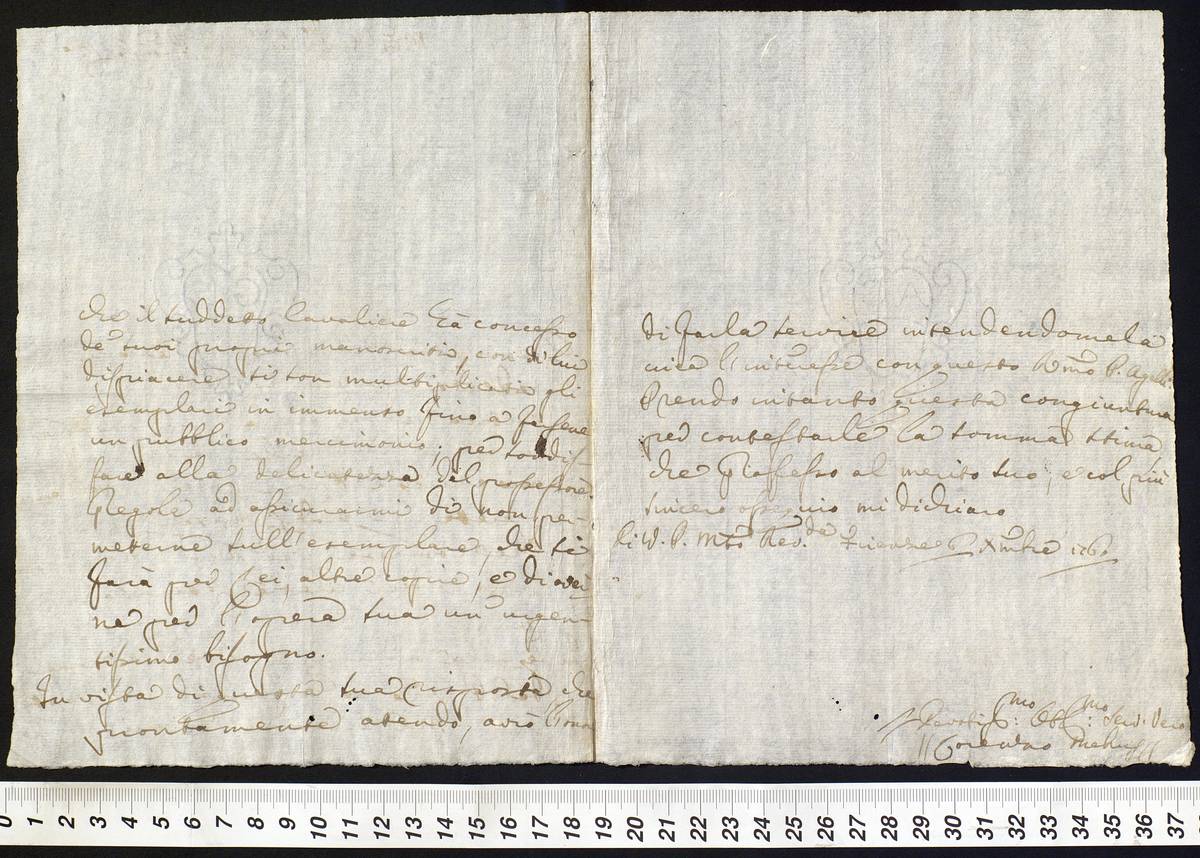 che il suddetto Cavaliere hà concesso
de' suoi propri manoscritti, con di lui
dispiacere si son multiplicati gli
esemplari in immenso fino a farsene
un pubblico mercimonio; per sodis-
fare alla delicatezza del professore
Pregola ad assicurarmi di non per-
metterne sull'esemplare, che si
farà per Lei, altre copie, e di aver-
ne per l'opera sua un' urgen-
tissimo bisogno.
In vista di questa sua risposta che
prontamente attendo, avrò l'onor
di farla servire intendendomela
circa l'interesse con questo Rmo P.
Prendo intanto questa congiuntura
per contestarle la somma stima
che Professo al merito suo, e col più
sincero ossequio mi dichiaro
Di V. P. Mto Revda Firenze Xmbre
Devotis:mo Obb:mo Serv: Vero
Lorenzo Mehus
0 1 2 3 4 5 6 7 8 9 10 11 12 13 14 15 16 17 18 19 20 21 22 23 24 25 26 27 28 29 30 31 32 33 34 35 36 37